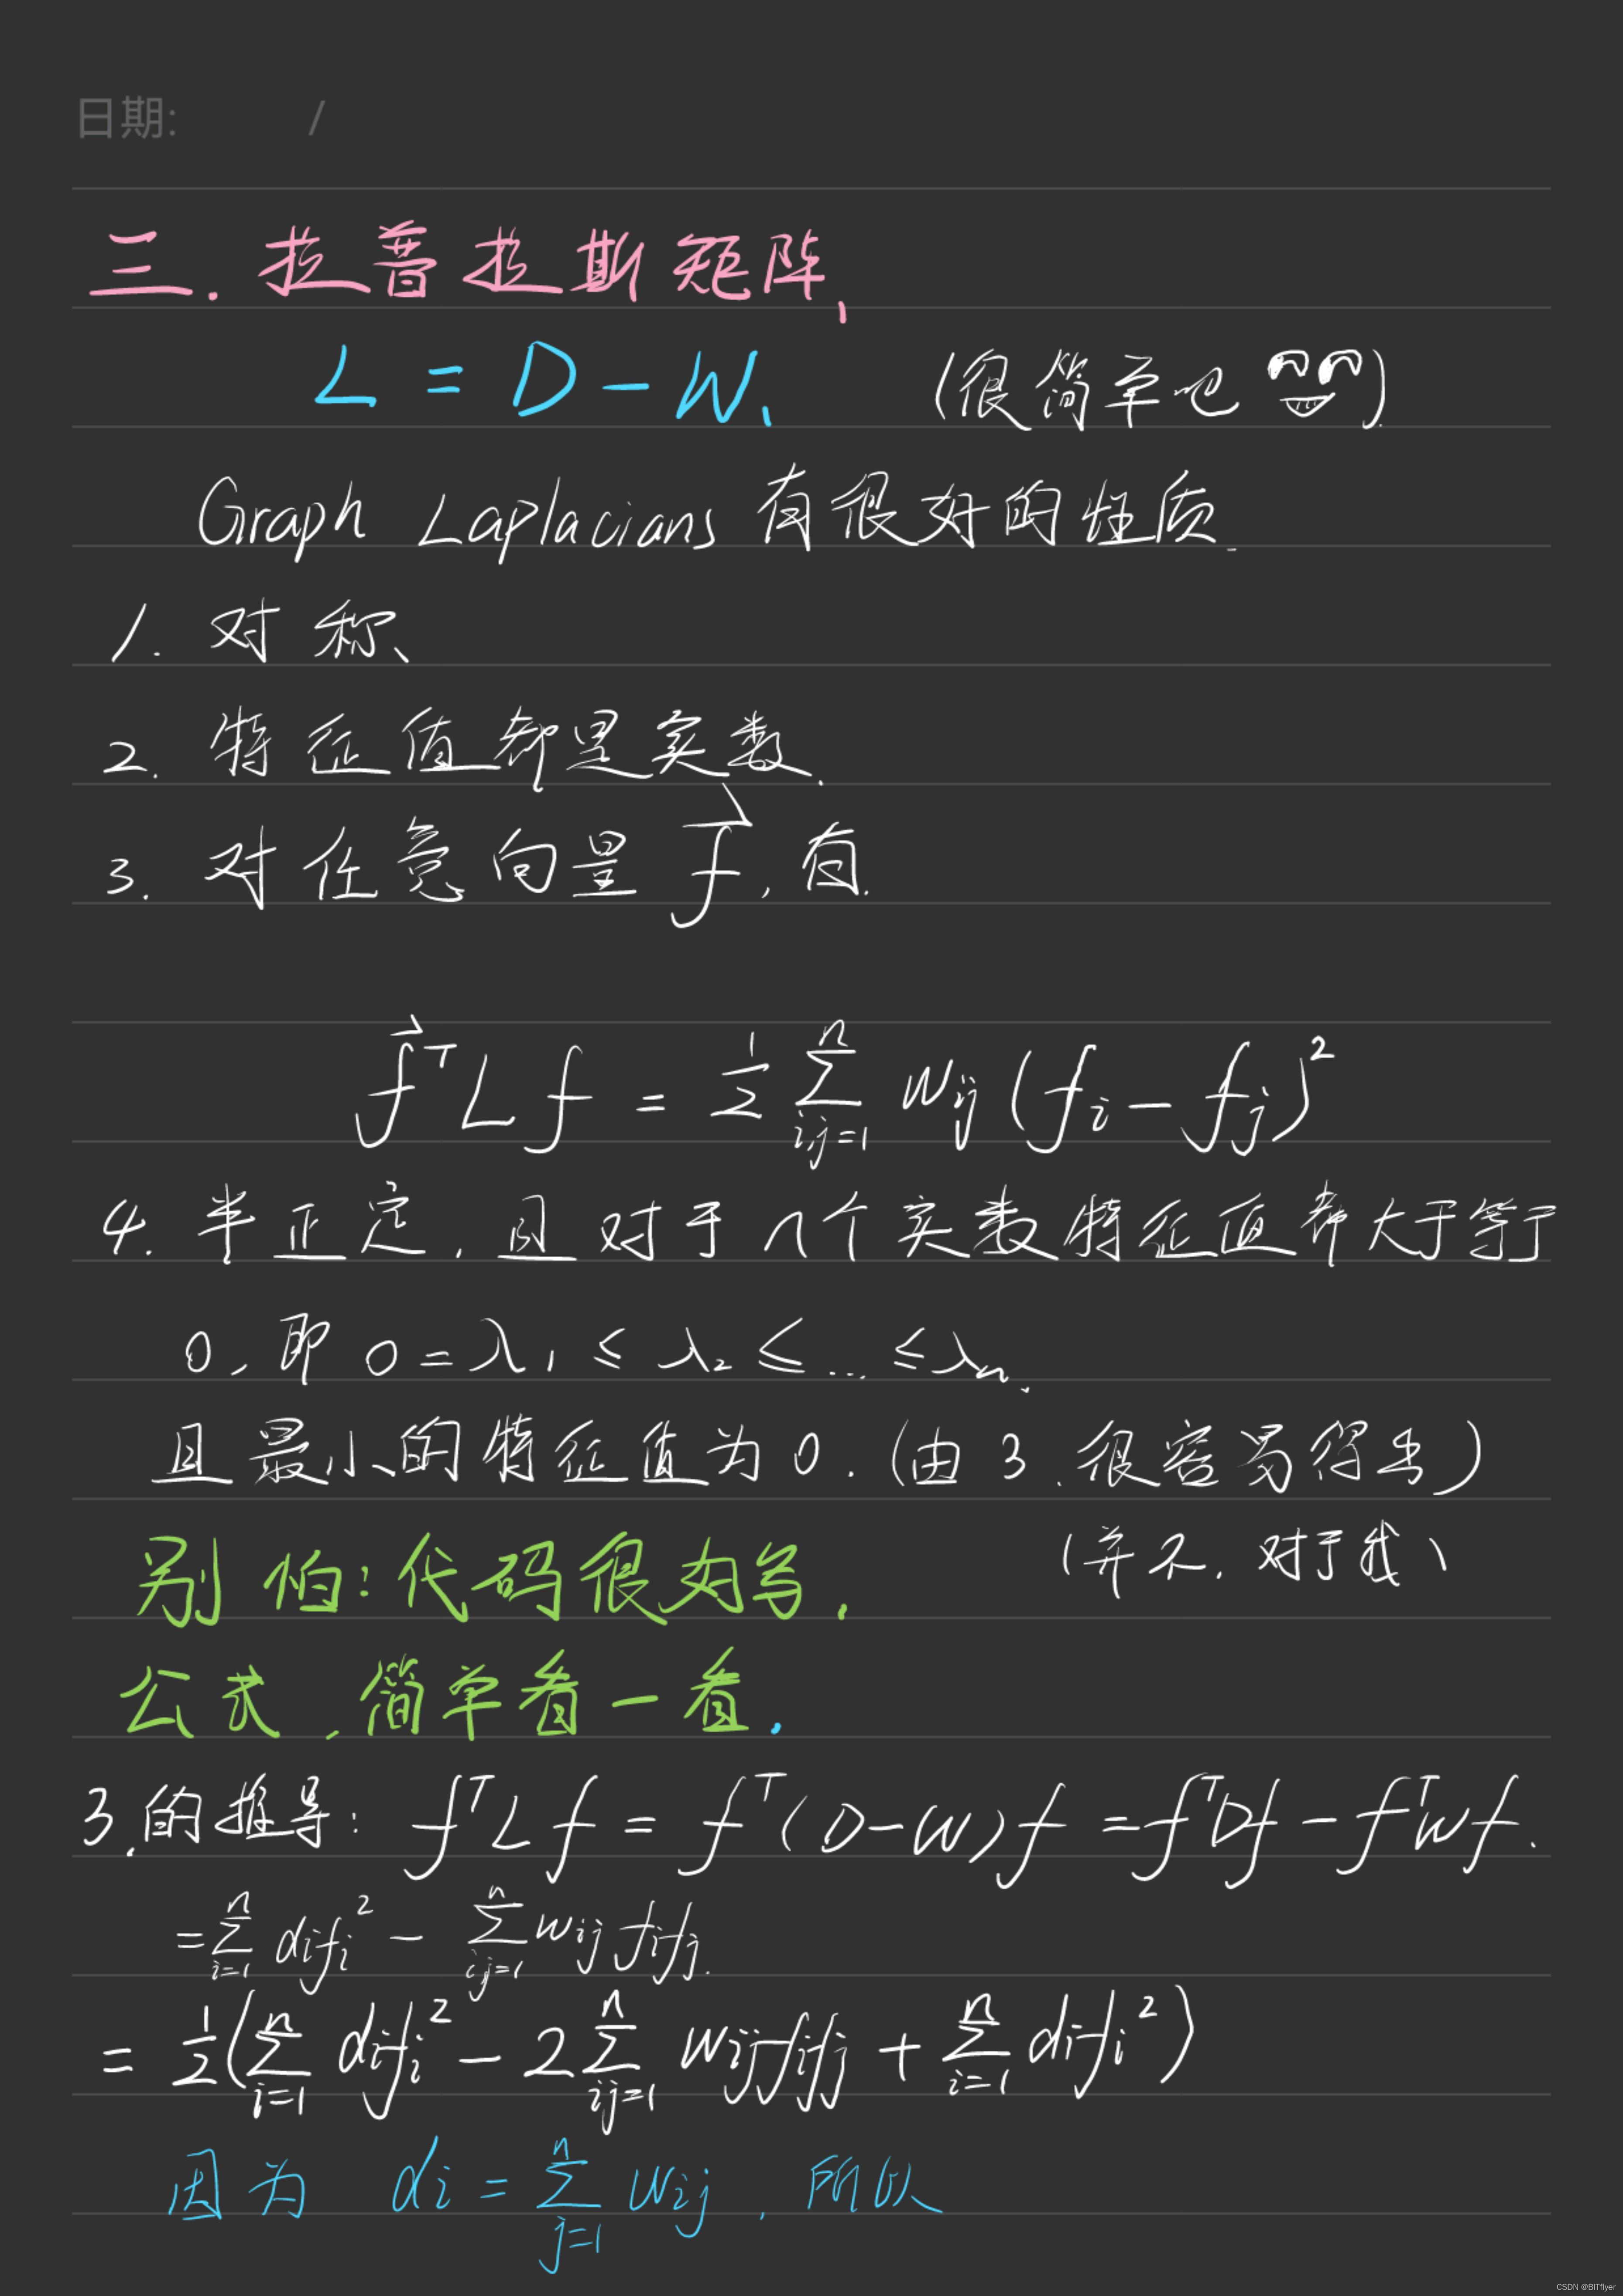 日期: /
三.拉普拉斯矩阵、
L = D - W、 (很简单吧).
Graph Laplacians 有很好的性质.
1. 对称、
2. 特征值都是实数.
3. 对任意向量 f⃗, 有.
f⃗ᵀLf = 1/2 ∑ⁿᵢ,ⱼ₌₁ wᵢⱼ(fᵢ - fⱼ)²
4. 半正定, 且对于 n个实数特征值都大于等于
0, 即 0 = λ₁ ≤ λ₂ ≤ ... ≤ λₙ.
且最小的特征值为0. (由 3. 很容易得出)
(并不, 对于我)
别怕: 代码很好写.
公式, 简单看一看.
3.的推导: fᵀLf = fᵀ(D-W)f = fᵀDf - fᵀWf.
= ∑ⁿᵢ₌₁ dᵢfᵢ² - ∑ⁿᵢⱼ₌₁ wᵢⱼfᵢfⱼ.
= 1/2(∑ⁿᵢ₌₁ dᵢfᵢ² - 2∑ⁿᵢⱼ₌₁ wᵢⱼfᵢfⱼ + ∑ⁿᵢ₌₁ dᵢfᵢ²)
因为 dᵢ = ∑ⁿⱼ₌₁ wᵢⱼ, 所以
CSDN @BITflyer